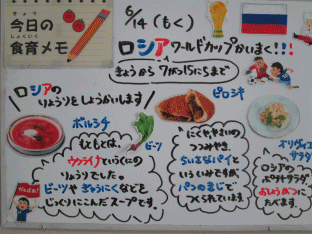 きょう
今日の
しょくいく
食育メモ
6/14(もく)
ロシアワールドカップかいまく!!!
きょうから7がつ15にちまで
ロシアの
りょうりをしょうかいします
ボルシチ
もともとは、
ウクライナというくにの
りょうりでした。
ビーツやぎゅうにくなどを
じっくりにこんだスープです。
ビーツ
がんばれ!
ピロシキ
にくややさいの
つつみやき。
ちいさなパイと
いういみですが
パンのきじで
つくられています
オリヴィエ
サラダ
ロシアの
ポテトサラダ。
おしょうがつに
たべます。